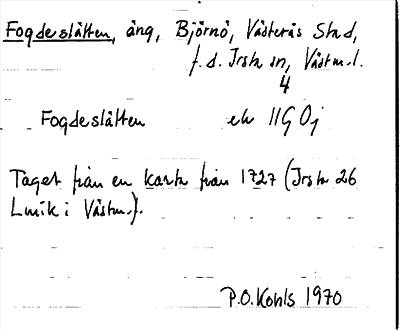 Fogdeslätten, äng, Björnö, Västerås Stad,
f.d. Irsta sn, Västm.l.
4
Fogdeslätten ek 11G 0j
Taget från en karta från 1727 (Irsta 26
Lmk i Västm.).
P.O. Kohls 1970